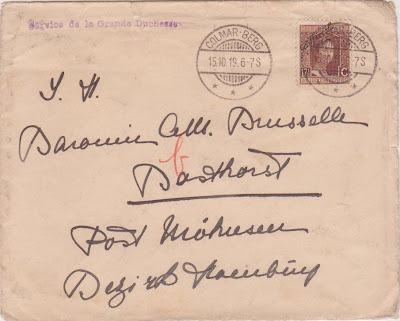 Service de la Grande Duchesse
COLMAR-BERG
15.10.19.6-7S
C
-BERG
-7S
Baronin Brusselle
Basthorst
Post Möhnsen
Bezirk Hamburg